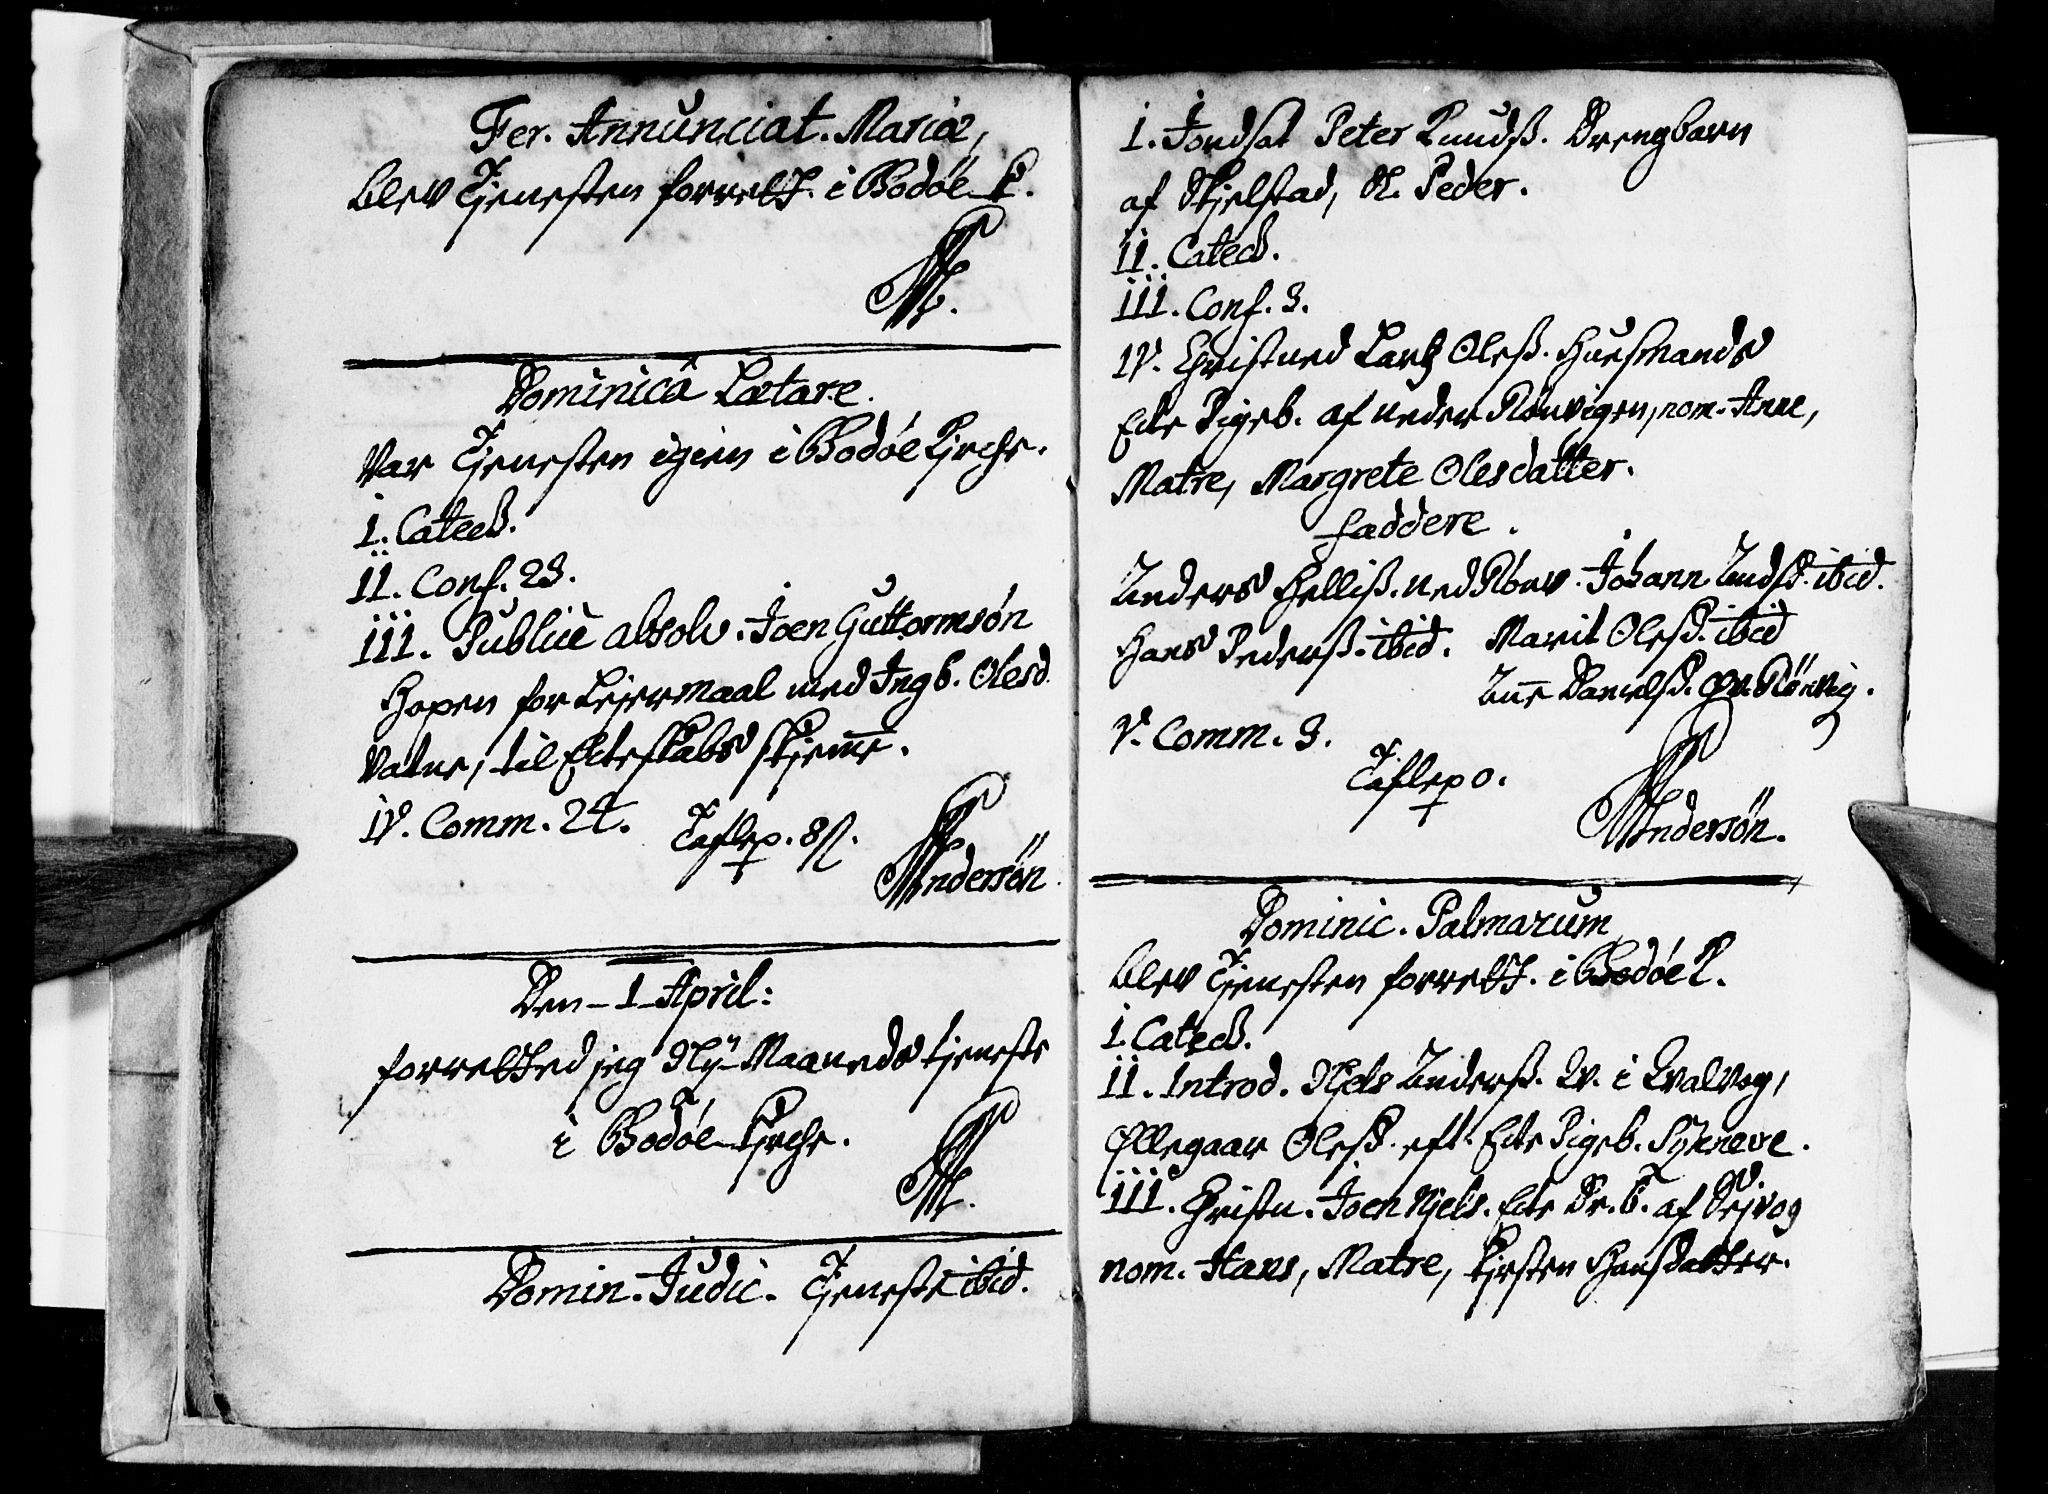 Fer. Annunciat. Mariæ,
blev Tjenesten forrett. i Bodøe K.
Dominicâ Lætare.
var Tjenesten igien i Bodøe Kjrche.
I. Catech.
II. Conf. 23.
III. Publicè absolv. Joen Guttormsøn
Hopen for Lejermaal med Ingb. Olesd.
Vatne, til Ecteskabs Skjemme.
IV. Comm. 24. Taflep. 8 ß.
Andersøn
Den 1 April:
forretted jeg Ny-Maaneds tjeneste
i Bodøe Kjrche.
Domin. Judic. Tjeneste ibid.
I. Jordsat Peter Knudß. Drengbarn
af Skjelstad, N. Peder.
II. Catech.
III. Conf. 3.
IV. Christned Lartz Oleß. Huusmands
Ecte Pigeb. af neder Rønvigen, nom. Anne,
Matre, Margrete Olesdatter.
faddere.
Anders Helliß. ned Rønv. Johann Andsd. ibid.
Hans Pederß. ibid. Marit Olesd. ibid
Anne Danielsd. Øv. Rønvig.
V. Comm. 3.
Taflep 0.
Andersøn.
Dominic. Palmarum
blev Tjenesten forrett. i Bodøe K.
I. Catech.
II. Introd. Njels Anderß. Qv. i Qvalvog,
Ellegaar Olesd. eft. Ecte Pigeb. Syneve.
III. Christn. Joen Njels. Ecte Dr. b. af
nom. Hans, Matre, Kjrsten Hansdatter.